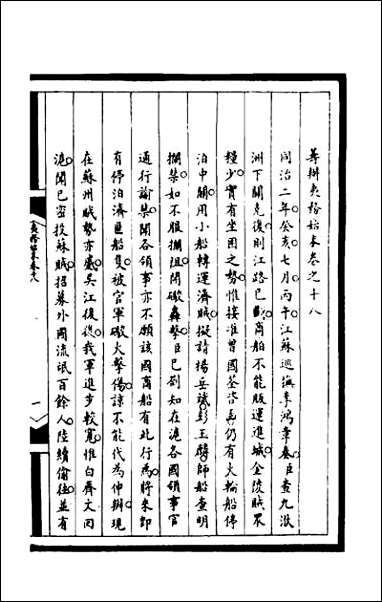 籌辦夷務始末卷之十八
同治二年癸亥七月丙午江蘇巡撫李鴻章奏臣查九洑
洲下關克復則江路已斷商船不能販運進城金陵賊眾
糧少實有坐困之勢惟接准曾國荃咨函仍有火輪船停
泊中關用小船轉運濟賊擬請楊岳斌彭玉麟師船查明
攔禁如不服攔阻開礮轟擊臣已劄知在滬各國領事官
通行諭禁開各領事亦不願該國商船有此行為將來即
有停泊濟匪船隻被官軍礮火擊傷諒不能代為伸辦現
在蘇州賊勢亦蹙吳江復後我軍進步較寬惟白齊文回
滬聞已密投蘇賊招募外國流氓百餘人陸續偷往並有
夷務始末卷十八
一